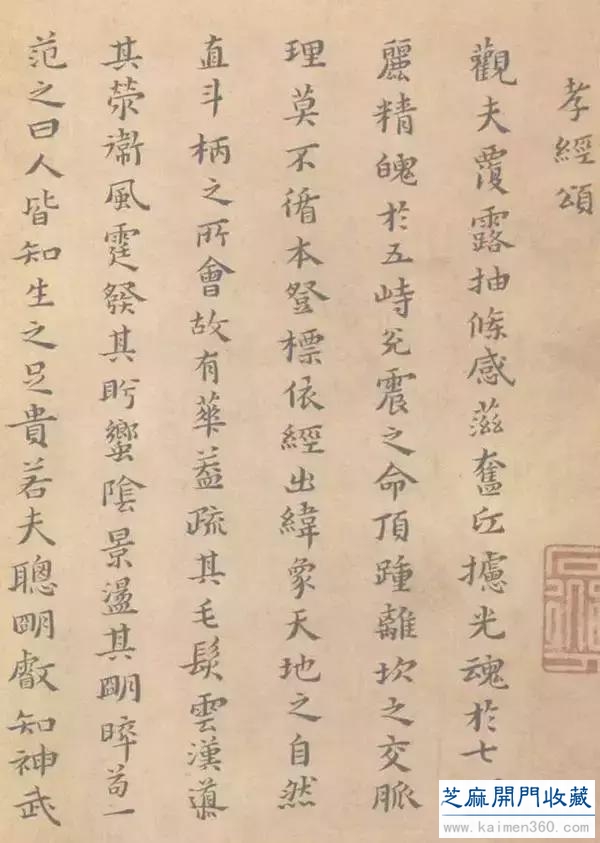 孝經頌
觀夫覆露抽條感滋奮攄光魂於七
麗精魄於五峙兌震之命頂踵離坎之交脈
理莫不循本登標依經出緯象天地之自然
直斗柄之所會故有華蓋疏其毛髮雲漢導
其滎衞風霆發其盻蠁陰景盪其朙晬苟一
范之曰人皆知生之足貴若夫聰朙叡知神武
芝麻開門收藏
www.kaimen360.com